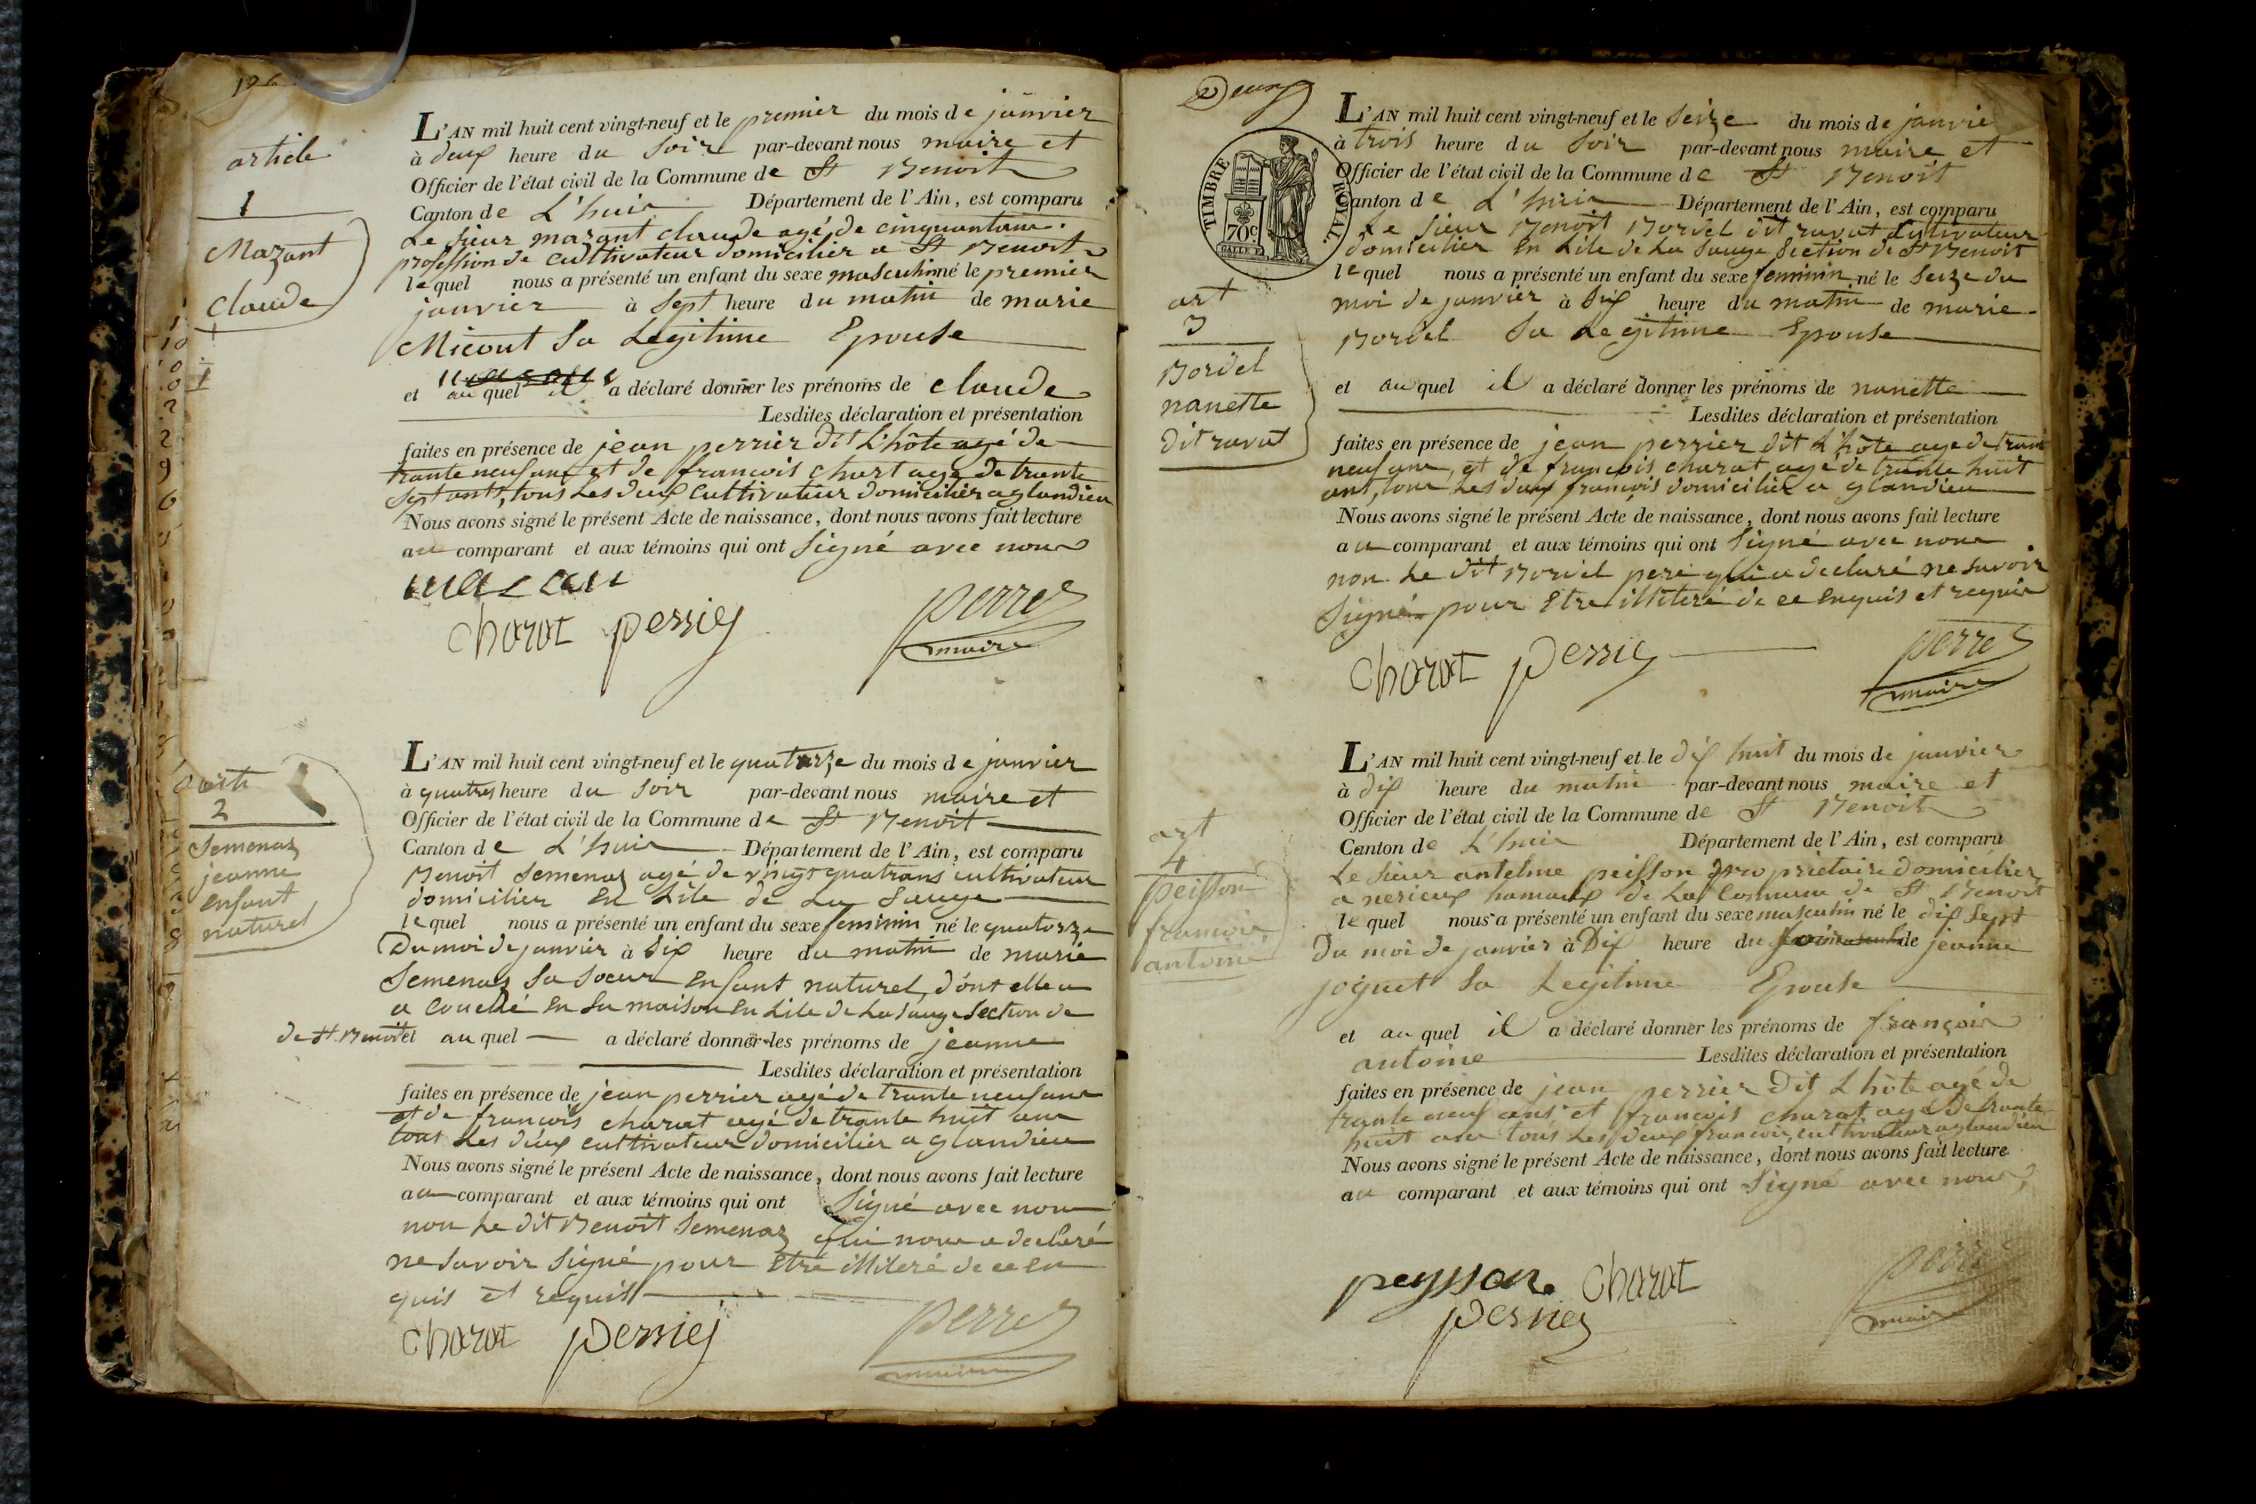 196
article
1
Mazant
claude
L'AN mil huit cent vingt-neuf et le premier du mois de janvier
à deux heure du Soir par-devant nous maire et
Officier de l'état civil de la Commune de St Benoit
Canton de L'huis Département de l'Ain, est comparu
Le sieur mazant claude agé de cinquantans
profession de cultivateur domicilier a St Benoit
lequel nous a présenté un enfant du sexe masculin né le premier
janvier à Sept heure du matin de marie
Micout Sa Legitime Epouse
et au quel il a déclaré donner les prénoms de claude
Lesdites déclaration et présentation
faites en présence de jean perrier dit L'hôte agé de
trante neuf ans et de francois charat agé de trante
Sept ants, tous Les deux cultivateur domicilier a glandieu
Nous avons signé le présent Acte de naissance, dont nous avons fait lecture
au comparant et aux témoins qui ont Signé avec nous
mazan
charat perrier perret
maire
art
2
Semenaz
jeanne
enfant
naturel
L'AN mil huit cent vingt-neuf et le quatorze du mois de janvier
à quatres heure du Soir par-devant nous maire et
Officier de l'état civil de la Commune de St Benoit
Canton de L'huis Département de l'Ain, est comparu
Benoit Semenaz agé de vingt quatrans cultivateur
domicilier en Lile de La Sauge
lequel nous a présenté un enfant du sexe feminin né le quatorze
Du moi de janvier à Dix heure du matin de marie
Semenaz Sa Soeur enfant naturel, dont elle a
a couché en Sa maison en Lile de La Sauge Section de
de St Benoit et au quel a déclaré donner les prénoms de jeanne
Lesdites déclaration et présentation
faites en présence de jean perrier agé de trante neuf ans
et de francois charat agé de trante huit ans
tous Les deux cultivateur domicilier a glandieu
Nous avons signé le présent Acte de naissance, dont nous avons fait lecture
au comparant et aux témoins qui ont Signé avec nous
non Le dit Benoit Semenaz qui nous a déclaré
ne Savoir Signé pour Etre illiteré de ce en
quis et requis
charat perrier perret
maire
Deux
TIMBRE ROYAL
70 c
art
3
Bordel
nanette
dit ravat
L'AN mil huit cent vingt-neuf et le Seize du mois de janvie
à trois heure du Soir par-devant nous maire et
Officier de l'état civil de la Commune de St Benoit
Canton de L'huis Département de l'Ain, est comparu
Le Sieur Benoit Bordel dit ravat Cultivateur
domicilier en Lile de La Sauge Section de St Benoit
lequel nous a présenté un enfant du sexe feminin né le Seize du
moi de janvier à Dix heure du matin de marie
Bordel Sa Legitime Epouse
et au quel il a déclaré donner les prénoms de nanette
Lesdites déclaration et présentation
faites en présence de jean perrier dit L'hôte agé de trant
neuf ans, et de francois charat agé de trante huit
ans, tous Les deux francois domicilier a glandieu
Nous avons signé le présent Acte de naissance, dont nous avons fait lecture
au comparant et aux témoins qui ont Signé avec nous
non Le dit Bordel pere qui a declaré ne Savoir
Signé pour Etre illiteré de ce enquis et requis
charat perrier perret
maire
art
4
peisson
francois
antoine
L'AN mil huit cent vingt-neuf et le dix huit du mois de janvier
à dix heure du matin par-devant nous maire et
Officier de l'état civil de la Commune de St Benoit
Canton de L'huis Département de l'Ain, est comparu
Le Sieur antelme peisson proprietaire domicilier
a nerieux hamaux de La Commune de St Benoit
lequel nous a présenté un enfant du sexe masculin né le dix Sept
Du moi de janvier à Dix heure du Soir de jeanne
joguet Sa Legitime Epouse
et au quel il a déclaré donner les prénoms de françois
antoine Lesdites déclaration et présentation
faites en présence de jean perrier Dit L'hôte agé de
trante neuf ans et francois charat agé De trante
huit ans tous Les deux francois, cultivateur a glandieu
Nous avons signé le présent Acte de naissance, dont nous avons fait lecture
au comparant et aux témoins qui ont Signé avec nous
peysson charat
perrier perret
maire